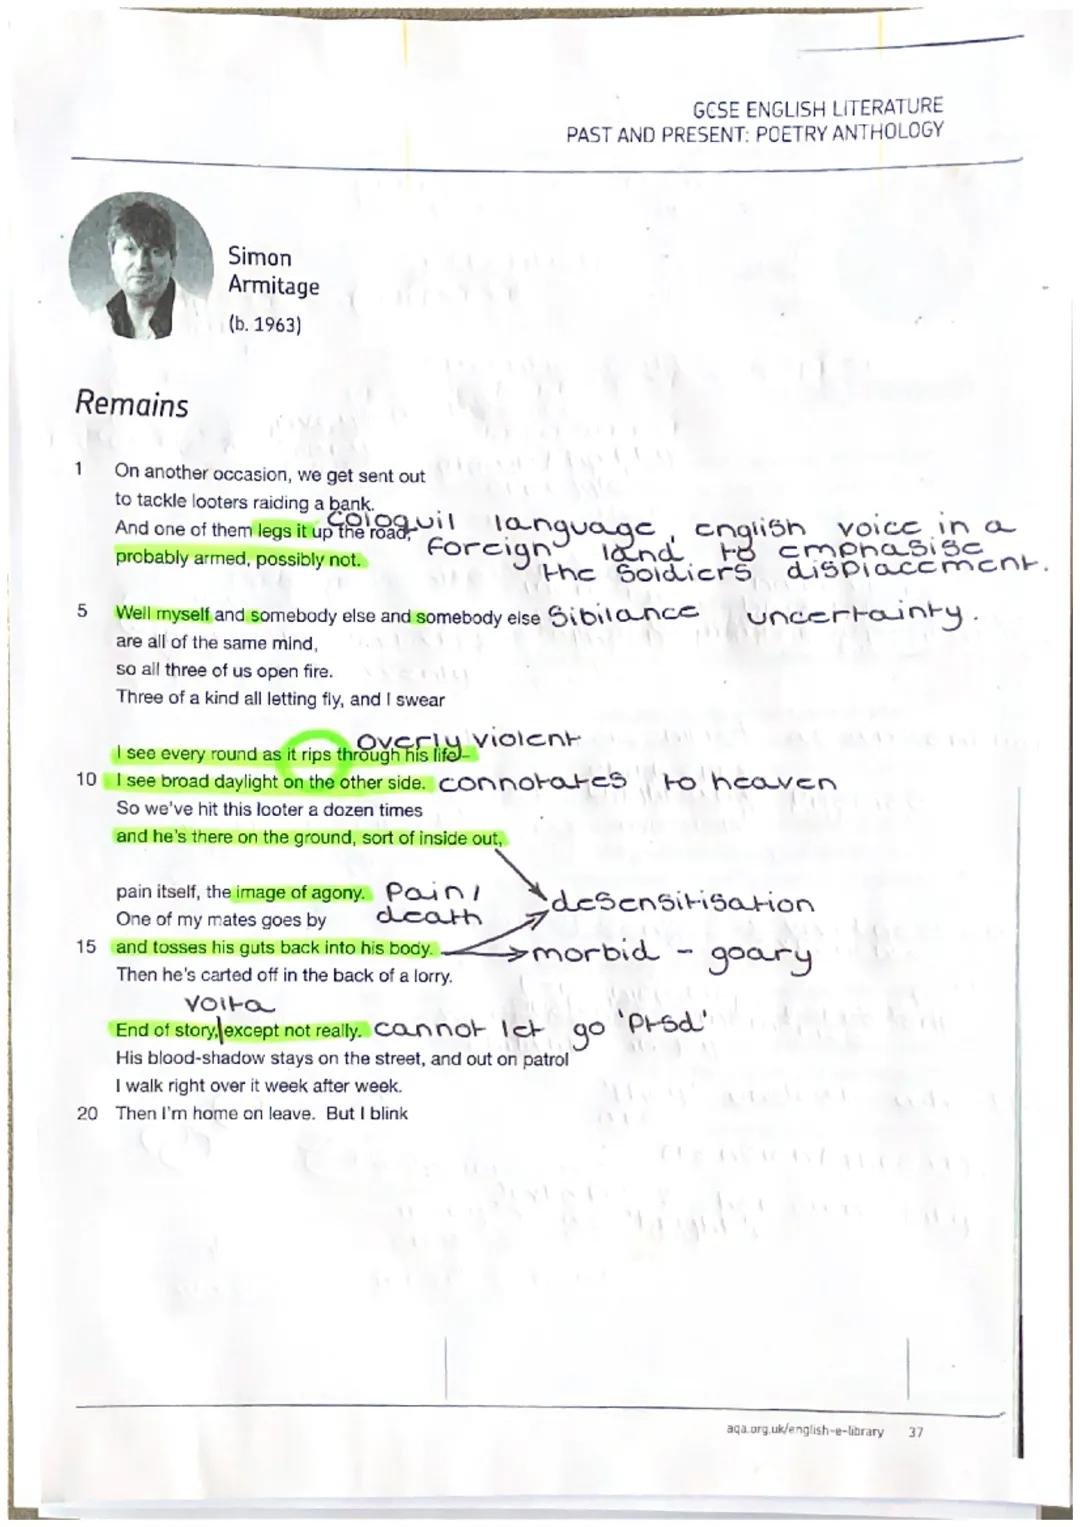 GCSE ENGLISH LITERATURE
PAST AND PRESENT: POETRY ANTHOLOGY
Simon
Armitage
(b. 1963)
Remains
1 On another occasion, we get sent out
to tackle looters raiding a bank.
And one of them legs it up the road, cologuil language, english voice in a
probably armed, possibly not. foreign land to emphasise
the soldiers displacement.
5 Well myself and somebody else and somebody else Sibilance uncertainty.
are all of the same mind,
so all three of us open fire.
Three of a kind all letting fly, and I swear
overly violent
I see every round as it rips through his life–
10 I see broad daylight on the other side. connotates to heaven
So we've hit this looter a dozen times
and he's there on the ground, sort of inside out,
pain itself, the image of agony. Pain/ desensitisation
One of my mates goes by death
15 and tosses his guts back into his body. morbid - goary
Then he's carted off in the back of a lorry.
Volta
End of story, except not really. cannot let go 'Ptsd'
His blood-shadow stays on the street, and out on patrol
I walk right over it week after week.
20 Then I'm home on leave. But I blink
aqa.org.uk/english-e-library 37